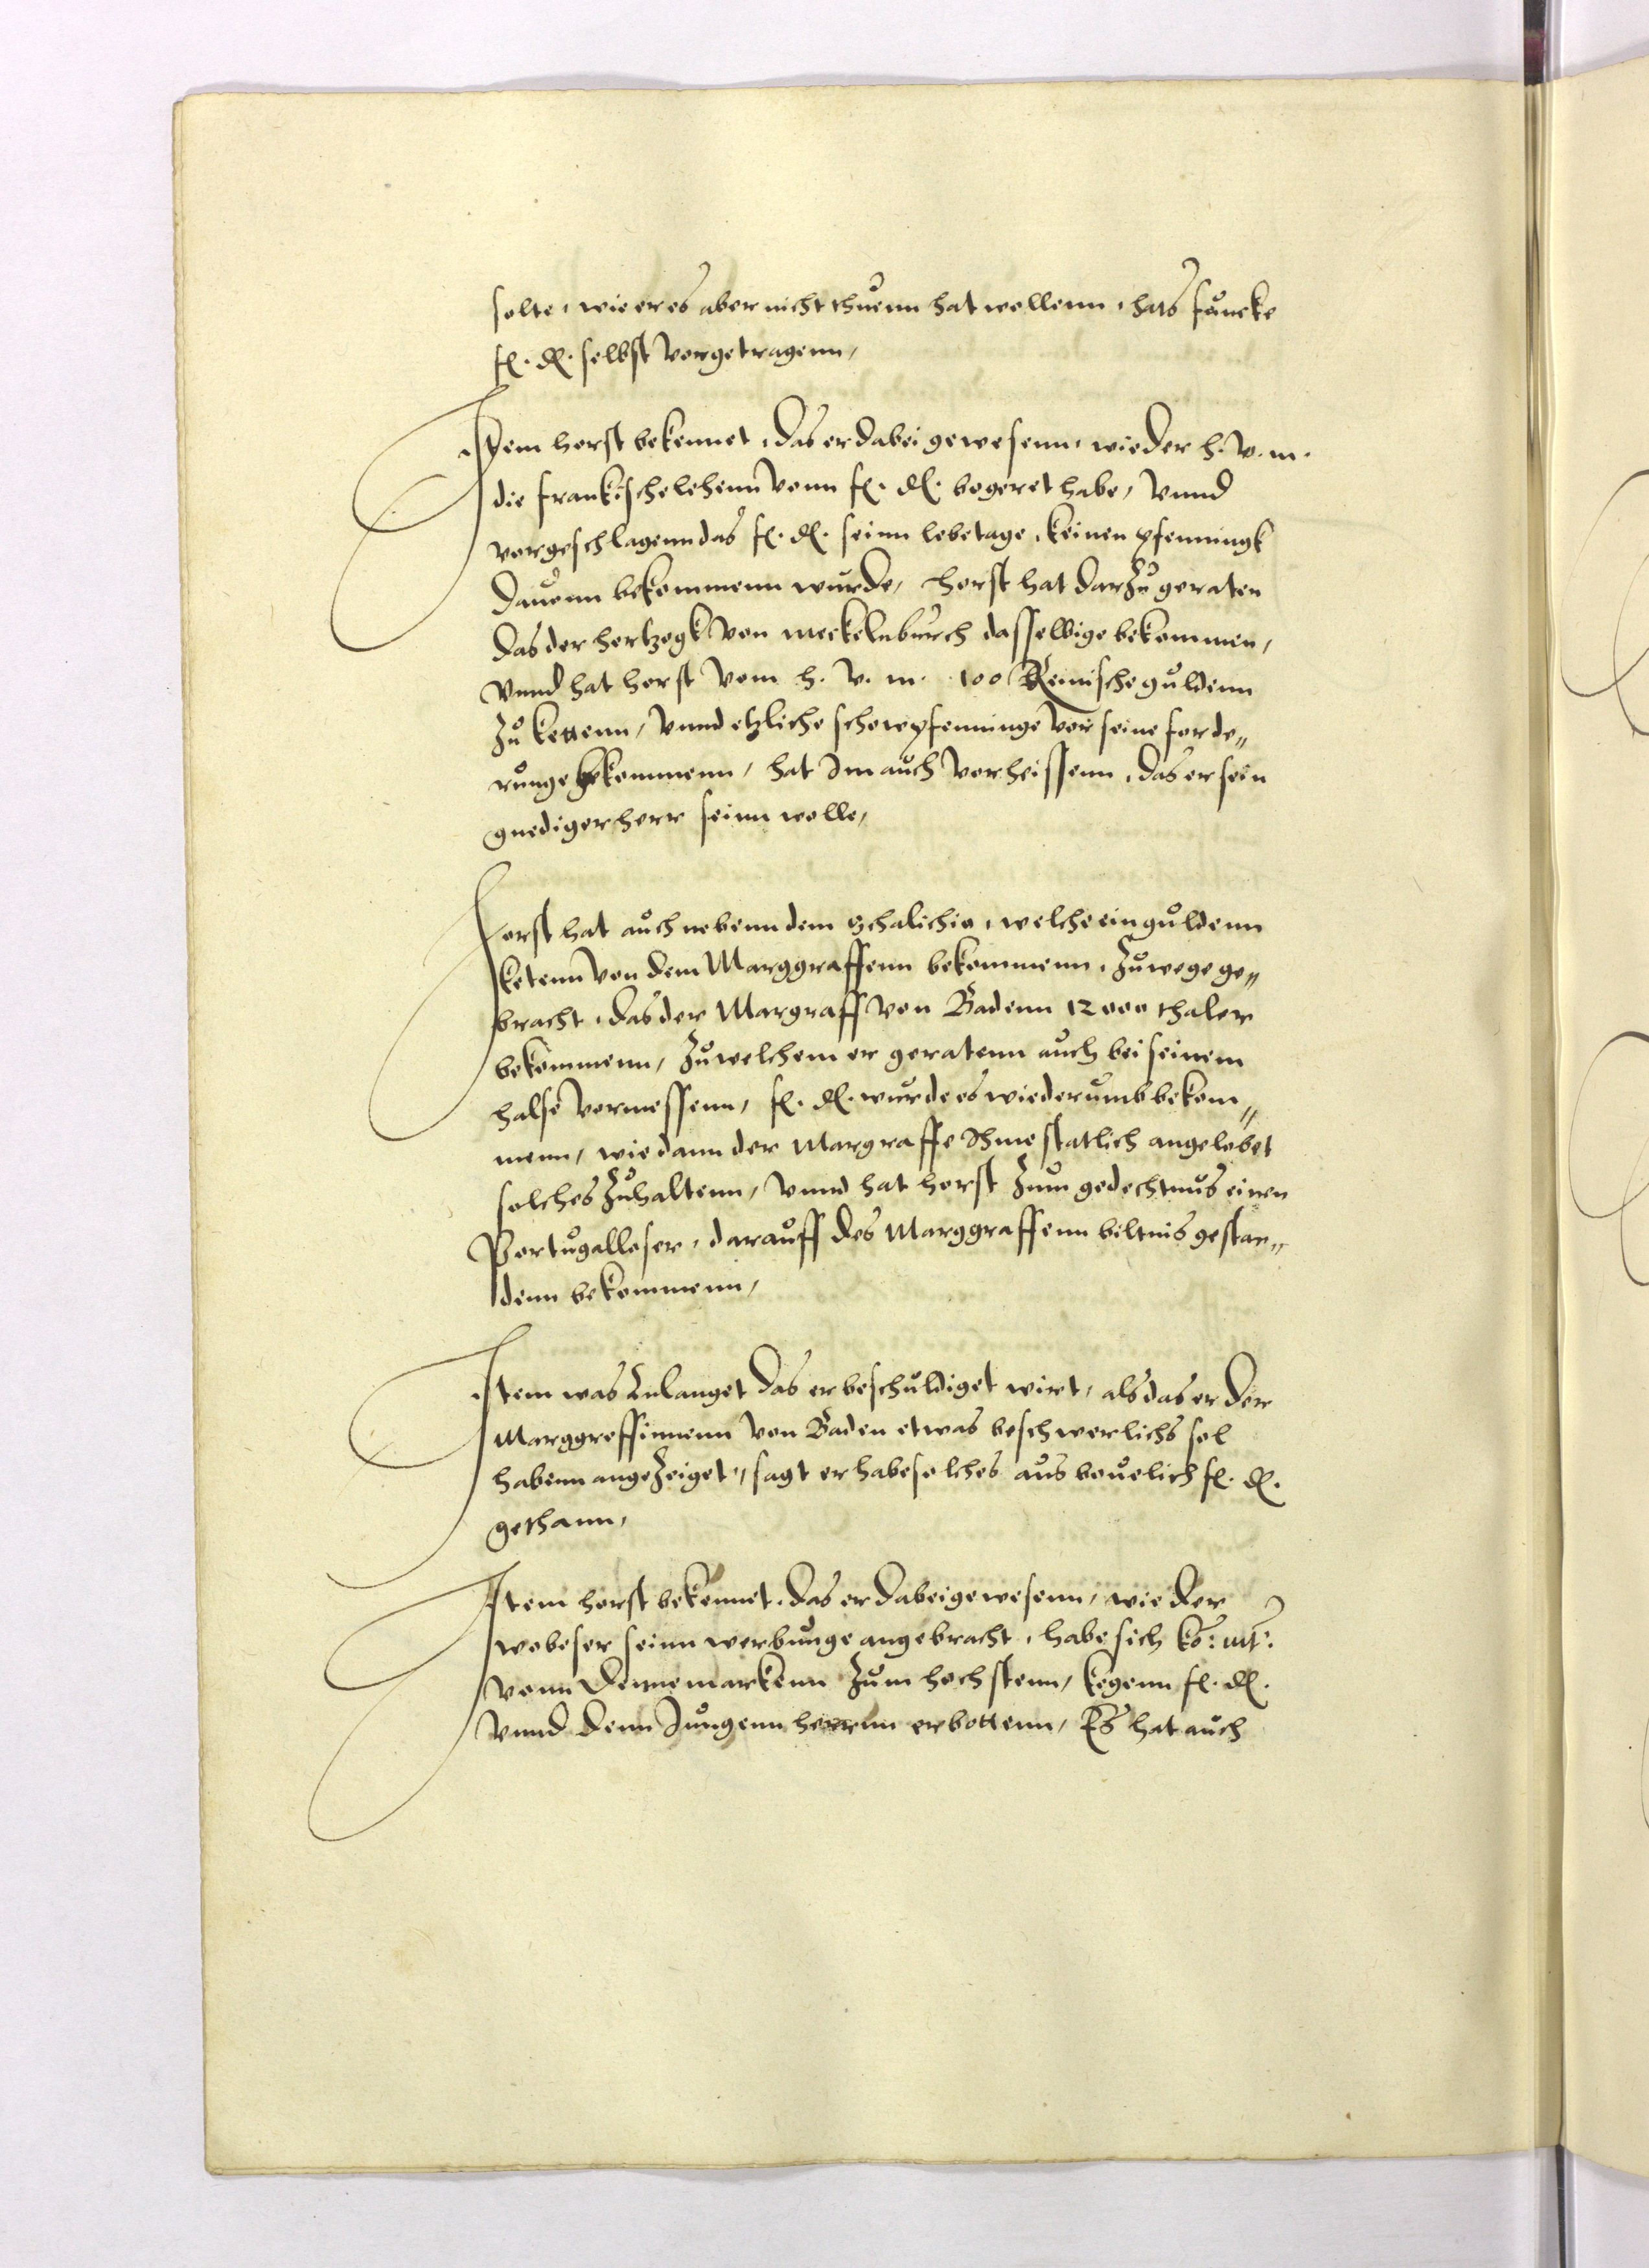 solte, wie er es aber nicht thuenn hat wollenn, hats funcke
fl. dl. selbst vorgetragenn,
Item horst bekennet, das er dabei gewesenn, wie der h. v. m.
die frankische lehenn vonn fl. dl. begeret habe, vnnd
vorgeschlagenn das fl. dl. seinn lebetage, keinen pfenningk
dauonn bekommenn wurde, horst hat darzu geraten
das der hertzogk von meckelnburch dasselbige bekommen,
vnnd hat horst vom h. v. m. 100 Reinische guldenn
zu kettenn, vnnd etzliche schowpfenninge vor seine forde„
runge bekommenn, hat Im auch vorheissenn, das er sein
gnediger herr seinn wolle,
Horst hat auch nebenn dem schalichio, welche ein guldenn
ketenn von dem Marggraffenn bekommenn, zuwege ge„
bracht, das der Margraff von Badenn 12000 thaler
bekommenn, zu welchem er geratenn auch bei seinem
halse vormessenn, fl. dl. wurde es wiederumb bekom„
menn, wie dann der Margraffe Ihme statlich angelobet
solches zuhaltenn, vnnd hat horst zum gedechtnus einen
Portugalloser, darauff des Marggraffenn biltnis gestan„
denn bekommenn,
Item was Anlanget das er beschuldiget wirt, als das er der
Marggreffinnenn von Baden etwas beschwerlichs sol
habenn angezeiget, sagt er habe solches aus beuelich fl. dl.
gethann,
Item horst bekennet, das er dabei gewesenn, wie der
wobeser seinn werbunge angebracht, habe sich ko: mt:
vonn Dennemarkenn zum hochstenn, kegenn fl. dl.
vnnd denn Jungenn herrnn erbottenn, Es hat auch